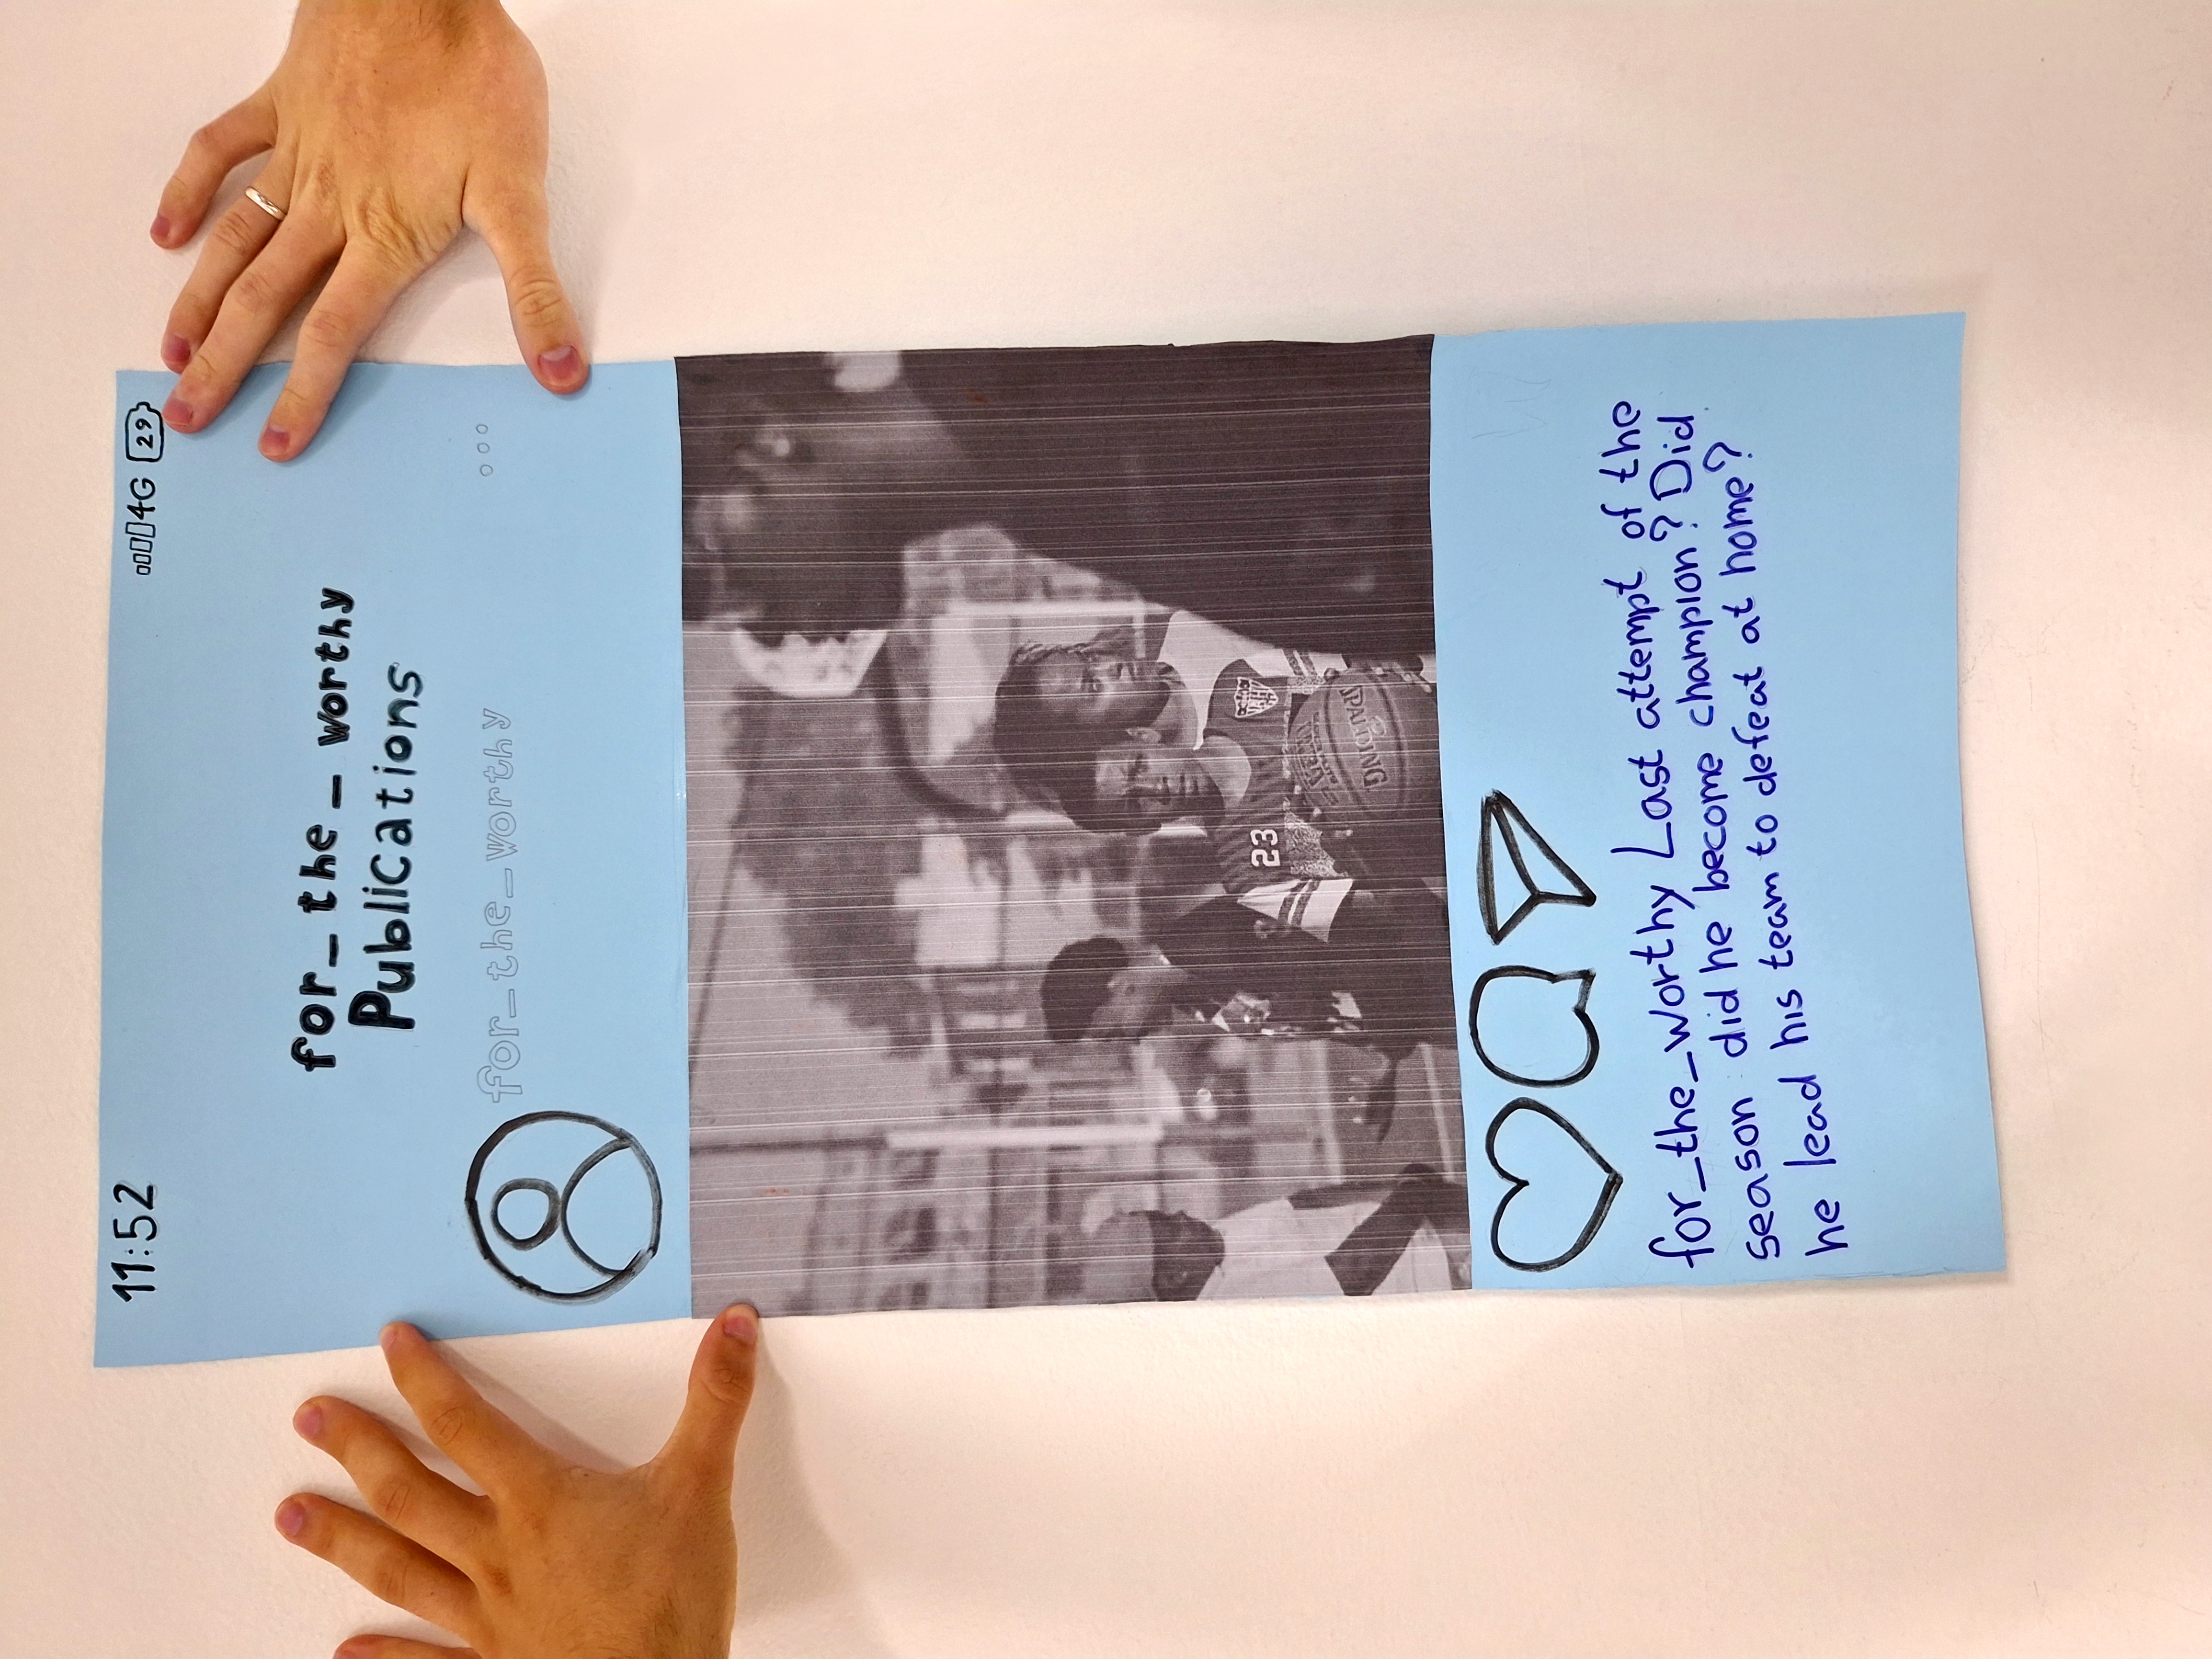 11:52 4G 29
for_the_worthy
Publications
for_the_worthy
23
SPALDING
for_the_worthy Last attempt of the
season did he become champion? Did
he lead his team to defeat at home?